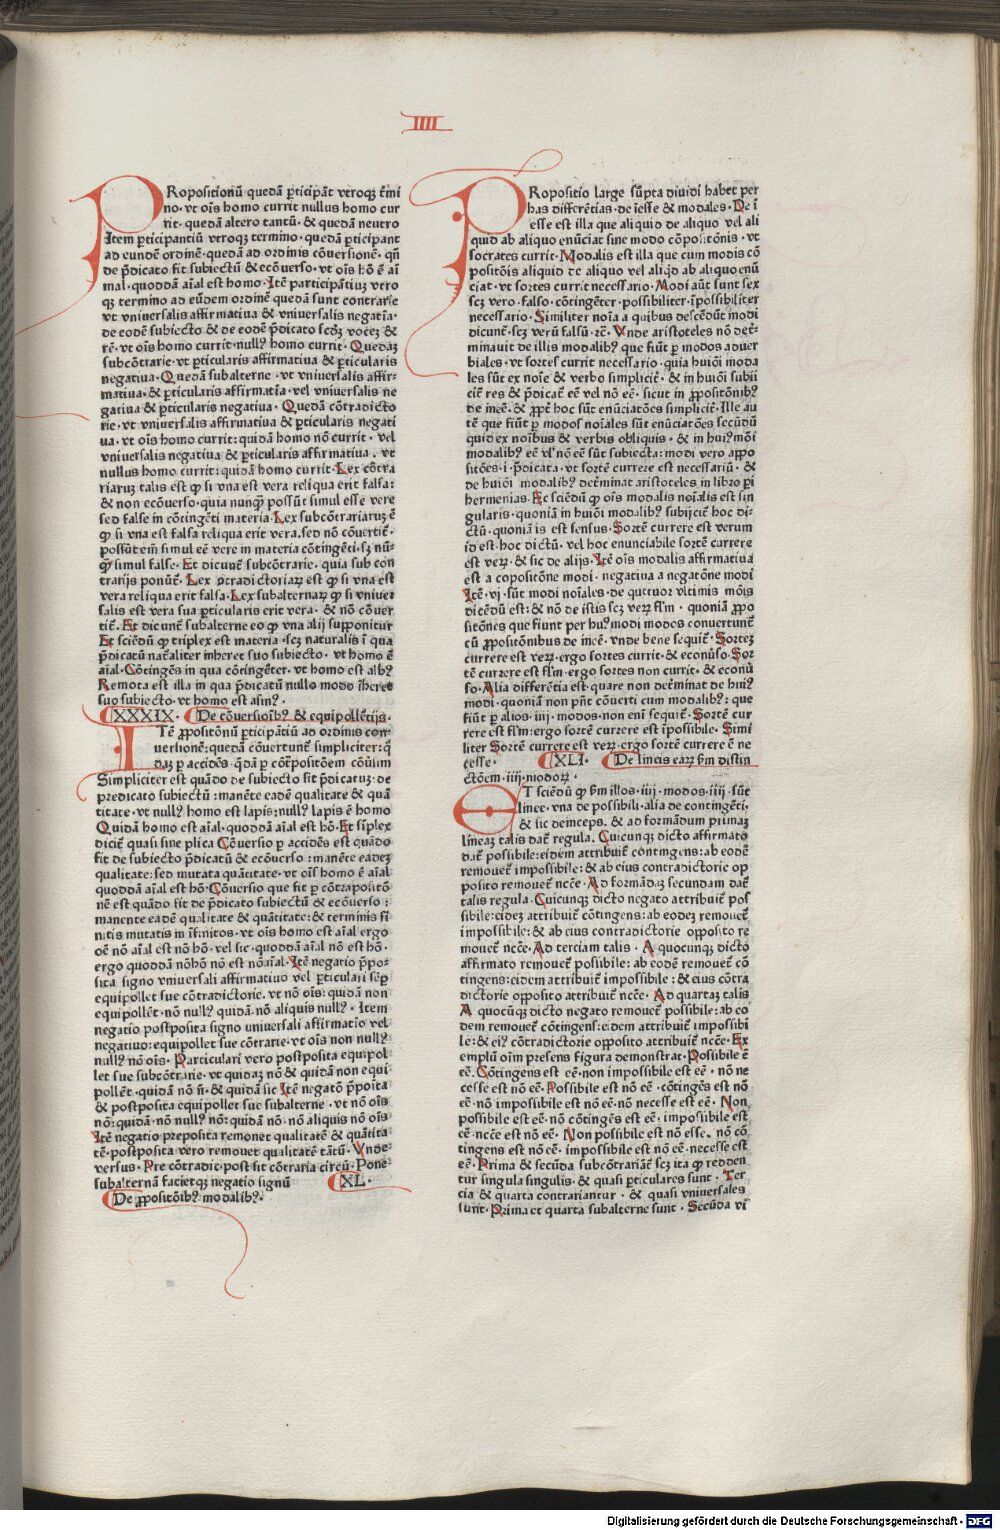 IIII
PRopositionū quedā ꝑticipāt vtroqꝫ t̄mi
no·vt oīs homo currit nullus homo cur
rit·quedā altero tantū·& quedā neutro
Item ꝑticipantiū vtroqꝫ termino·quedā ꝑticipant
ad eundē ordinē·quedā ad ordinis cōuersionē·qn̄
de p̄dicato fit subiectū & ecōuerso·vt oīs hō ē aī
mal·quoddā aīal est homo·Itē participātiuꝫ vtro
qꝫ termino ad eūdem ordinē quedā sunt contrarie
vt vniuersalis affirmatiua & vniuersalis negatīa·
de eodē subiecto & de eodē p̄dicato scdꝫ voceꝫ &
rē·vt oīs homo currit·nullꝰ homo currit·Quedaꝫ
subcōtrarie·vt ꝑticularis affirmatiua & ꝑticularis
negatiua·Quedā subalterne·vt vniuersalis affir-
matiua·& ꝑticularis affirmatīa·vel vniuersalis ne
gatiua & ꝑticularis negatiua·Quedā cōtradicto
rie·vt vniuersalis affirmatiua & ꝑticularis negati
ua·vt oīs homo currit: quidā homo nō currit·vel
vniuersalis negatiua & ꝑticularis affirmatiua·vt
nullus homo currit: quidā homo currit·Lex cōtra
riaruꝫ talis est ꝙ si vna est vera reliqua erit falsa:
& non ecōuerso·quia nunqꝫ possūt simul esse vere
sed false in cōtingēti materia·Lex subcōtrariaruꝫ ē
ꝙ si vna est falsa reliqua erit vera·sed nō cōuertit̄·
possūt em̄ simul eē vere in materia cōtingēti·sꝫ nū-
qꝫ simul false·Et dicunt̄ subcōtrarie·quia sub con
trarijs ponūt̄·Lex cōtradictoriaꝝ est ꝙ si vna est
vera reliqua erit falsa·Lex subalternaꝝ ꝙ si vniuer
salis est vera sua ꝑticularis erit vera·& nō cōuer
tit̄·Et dicunt̄ subalterne eo ꝙ vna alij supponitur
Et sciēdū ꝙ triplex est materia·scꝫ naturalis ī qua
p̄dicatū nat̄aliter inheret suo subiecto·vt homo ē
aīal·Cōtingēs in qua cōtingēter·vt homo est albꝰ
Remota est illa in qua p̄dicatū nullo modo īheret
suo subiecto·vt homo est asinꝰ·
XXXIX· De cōuersioībꝰ & equipollētijs·
ITē ꝓpositōnū ꝑticipātiū ad ordinis con-
uersionē: quedā cōuertunt̄ simpliciter: q̄
daꝫ ꝑ accidēs·q̄dā ꝑ cōt̄positōem cōūlim
Simpliciter est quādo de subiecto fit p̄dicatuꝫ·de
predicato subiectū: manēte eadē qualitate & quā
titate·vt nullꝰ homo est lapis: nullꝰ lapis ē homo
Quidā homo est aīal·quoddā aīal est hō·Et sīplex
dicit̄ quasi sine plica Cōuersio ꝑ accidēs est quādo
fit de subiecto p̄dicatū & ecōuerso: manēte eadeꝫ
qualitate: sed mutata quātitate·vt oīs homo ē aīal
quoddā aīal est hō·Cōuersio que fit ꝑ cōtrapositō
nē est quādo fit de p̄dicato subiectū & ecōuerso:
manente eadē qualitate & quātitate: & terminis fi
nitis mutatis in īfinitos·vt oīs homo est aīal ergo
oē nō aīal est nō hō·vel sic·quoddā aīal nō est hō·
ergo quoddā nōhō nō est nōaīal·Itē negatio p̄po-
sita signo vniuersali affirmatiuo vel ꝑticulari semꝑ
equipollet sue cōtradictorie·vt nō oīs: quidā non
equipollēt·nō nullꝰ quidā·nō aliquis nullꝰ·Item
negatio postposita signo uniuersali affirmatīo vel
negatiuo: equipollet sue cōtrarie·vt oīs non nullꝰ
nullꝰ nō oīs·Particulari vero postposita equipol
let sue subcōtrarie·vt quidaꝫ nō & quidā non equi
pollēt·quidā·nō n̄·& quidā sic Itē negatō p̄poīta
& postposita equipollet sue subalterne·vt nō oīs
nō: quidā·nō nullꝰ nō: quidā nō·nō aliquis nō oīs
Itē negatio preposita remouet qualitatē & quātita
tē·postposita vero remouet qualitatē tātū·Vnde
versus·Pre cōtradic·post fit cōtraria circū·Pone
subalternā facietqꝫ negatio signū XL·
De ꝓpositōibꝰ modalibꝰ·
PRopositio large sūpta diuidi habet per
has differētias·de īesse & modales·De ī
esse est illa que aliquid de aliquo vel ali
quid ab aliquo enūciat sine modo cōpositōnis·vt
socrates currit·Modalis est illa que cum modis cō
positōis aliquid de aliquo vel aliqd ab aliquo enū
ciat·vt sortes currit necessario·Modi aūt sunt sex
scꝫ vero·falso·cōtingēter·possibiliter·īpossibiliter
necessario·Similiter noīa a quibus descēdūt modi
dicunt̄·scꝫ verū falsū·⁊c̄·Vnde aristoteles nō det̄-
minauit de illis modalibꝰ que fiūt ꝑ modos aduer
biales·vt sortes currit necessario·quia huiōi moda
les sūt ex noīe & verbo simplicit̄·& in huiōi subii
cit̄ res & p̄dicat̄ eē vel nō eē·sicut in ꝓpositōnibꝰ
de ineē·& ꝓpt̄ hoc sūt enūciatōes simplicit̄·Ille au
tē que fiūt ꝑ modos noīales sūt enūciatōes secūdū
quid ex noībus & verbis obliquis·& in huiꝰmōi
modalibꝰ eē vl̄ nō eē sūt subiecta: modi vero appo
sitōes·i·p̄dicata·vt sortē currere est necessariū·&
de huiōi modalibꝰ det̄minat aristoteles in libro ꝑi
hermenias·Et sciēdū ꝙ oīs modalis noīalis est sin
gularis·quoniā in huiōi modalibꝰ subijcit̄ hoc di-
ctū·quoniā is est sensus·Sortē currere est verum
id est·hoc dictū·vel hoc enunciabile sortē currere
est veꝝ·& sic de alijs·Itē oīs modalis affirmatiua
est a cōpositōne modi·negatiua a negatōne modi
Itē·vj·sūt modi noīales·de quttuor vltimis mōis
dicēdū est: & nō de istis scꝫ veꝝ fl̄m·quoniā ꝓpo
sitōnes que fiunt per huꝰmodi modos conuertunt̄
cū ꝓpositōnibus de ineē·vnde bene sequit̄·Sorteꝫ
currere est veꝝ·ergo sortes currit·& econūso·Sor
tē currere est fl̄m·ergo sortes non currit·& econū
so·Alia differētia est·quare non det̄minat de huiꝰ
modi·quoniā non pn̄t cōuerti cum modalibꝰ: que
fiūt ꝑ alios·iiij·modos·non em̄ sequit̄·Sortē cur
rere est fl̄m: ergo sortē currere est īpossibile·Simi
liter Sortē currere est veꝝ·ergo sortē currere ē ne
cesse· XLI· De lineis eaꝝ fm distin
ctōem·iiij·modoꝝ·
ET sciēdū ꝙ fm illos·iiij·modos·iiij·sūt
linee·vna de possibili·alia de contingēti·
& sic deinceps·& ad formādum primaꝫ
lineaꝫ talis dat̄ regula·Cuicunqꝫ dicto affirmato
dat̄ possibile: eidem attribuit̄ contingens: ab eodē
remouet̄ impossibile: & ab eius contradictorie op
posito remouet̄ ncc̄e·Ad formādaꝫ secundam dat̄
talis regula·Cuicunqꝫ dicto negato attribuit̄ pos
sibile: eideꝫ attribuit̄ cōtingens: ab eodeꝫ remouet̄
impossibile: & ab eius contradictorie opposito re
mouet̄ ncc̄e·Ad terciam talis·A quocunqꝫ dicto
affirmato remouet̄ possibile: ab eodē remouet̄ cō
tingens: eidem attribuit̄ impossibile: & eius cōtra
dictorie opposito attribuit̄ ncc̄e·Ad quartaꝫ talis
A quocūqꝫ dicto negato remouet̄ possibile: ab eo
dem remouet̄ cōtingens: eidem attribuit̄ impossibi
le: & eiꝰ cōtradictorie opposito attribuit̄ ncc̄e·Ex
emplū oīm presens figura demonstrat·Possibile ē
eē·Cōtingens est eē·non impossibile est eē·nō ne
cesse est nō eē·Possibile est nō eē·cōtingēs est nō
eē·nō impossibile est nō eē·nō necesse est eē·Non
possibile est eē·nō cōtingēs est eē·impossibile est
eē·ncc̄e est nō eē·Non possibile est nō esse·nō cō
tingens est nō eē·impossibile est nō eē·necesse est
eē·Prima & secūda subcōtrariāt̄ scꝫ ita ꝙ redden
tur singula singulis·& quasi ꝑticulares sunt·Ter
cia & quarta contrariantur·& quasi vniuersales
sunt·Prima et quarta subalterne sunt·Secūda vī
Digitalisierung gefördert durch die Deutsche Forschungsgemeinschaft · DFG